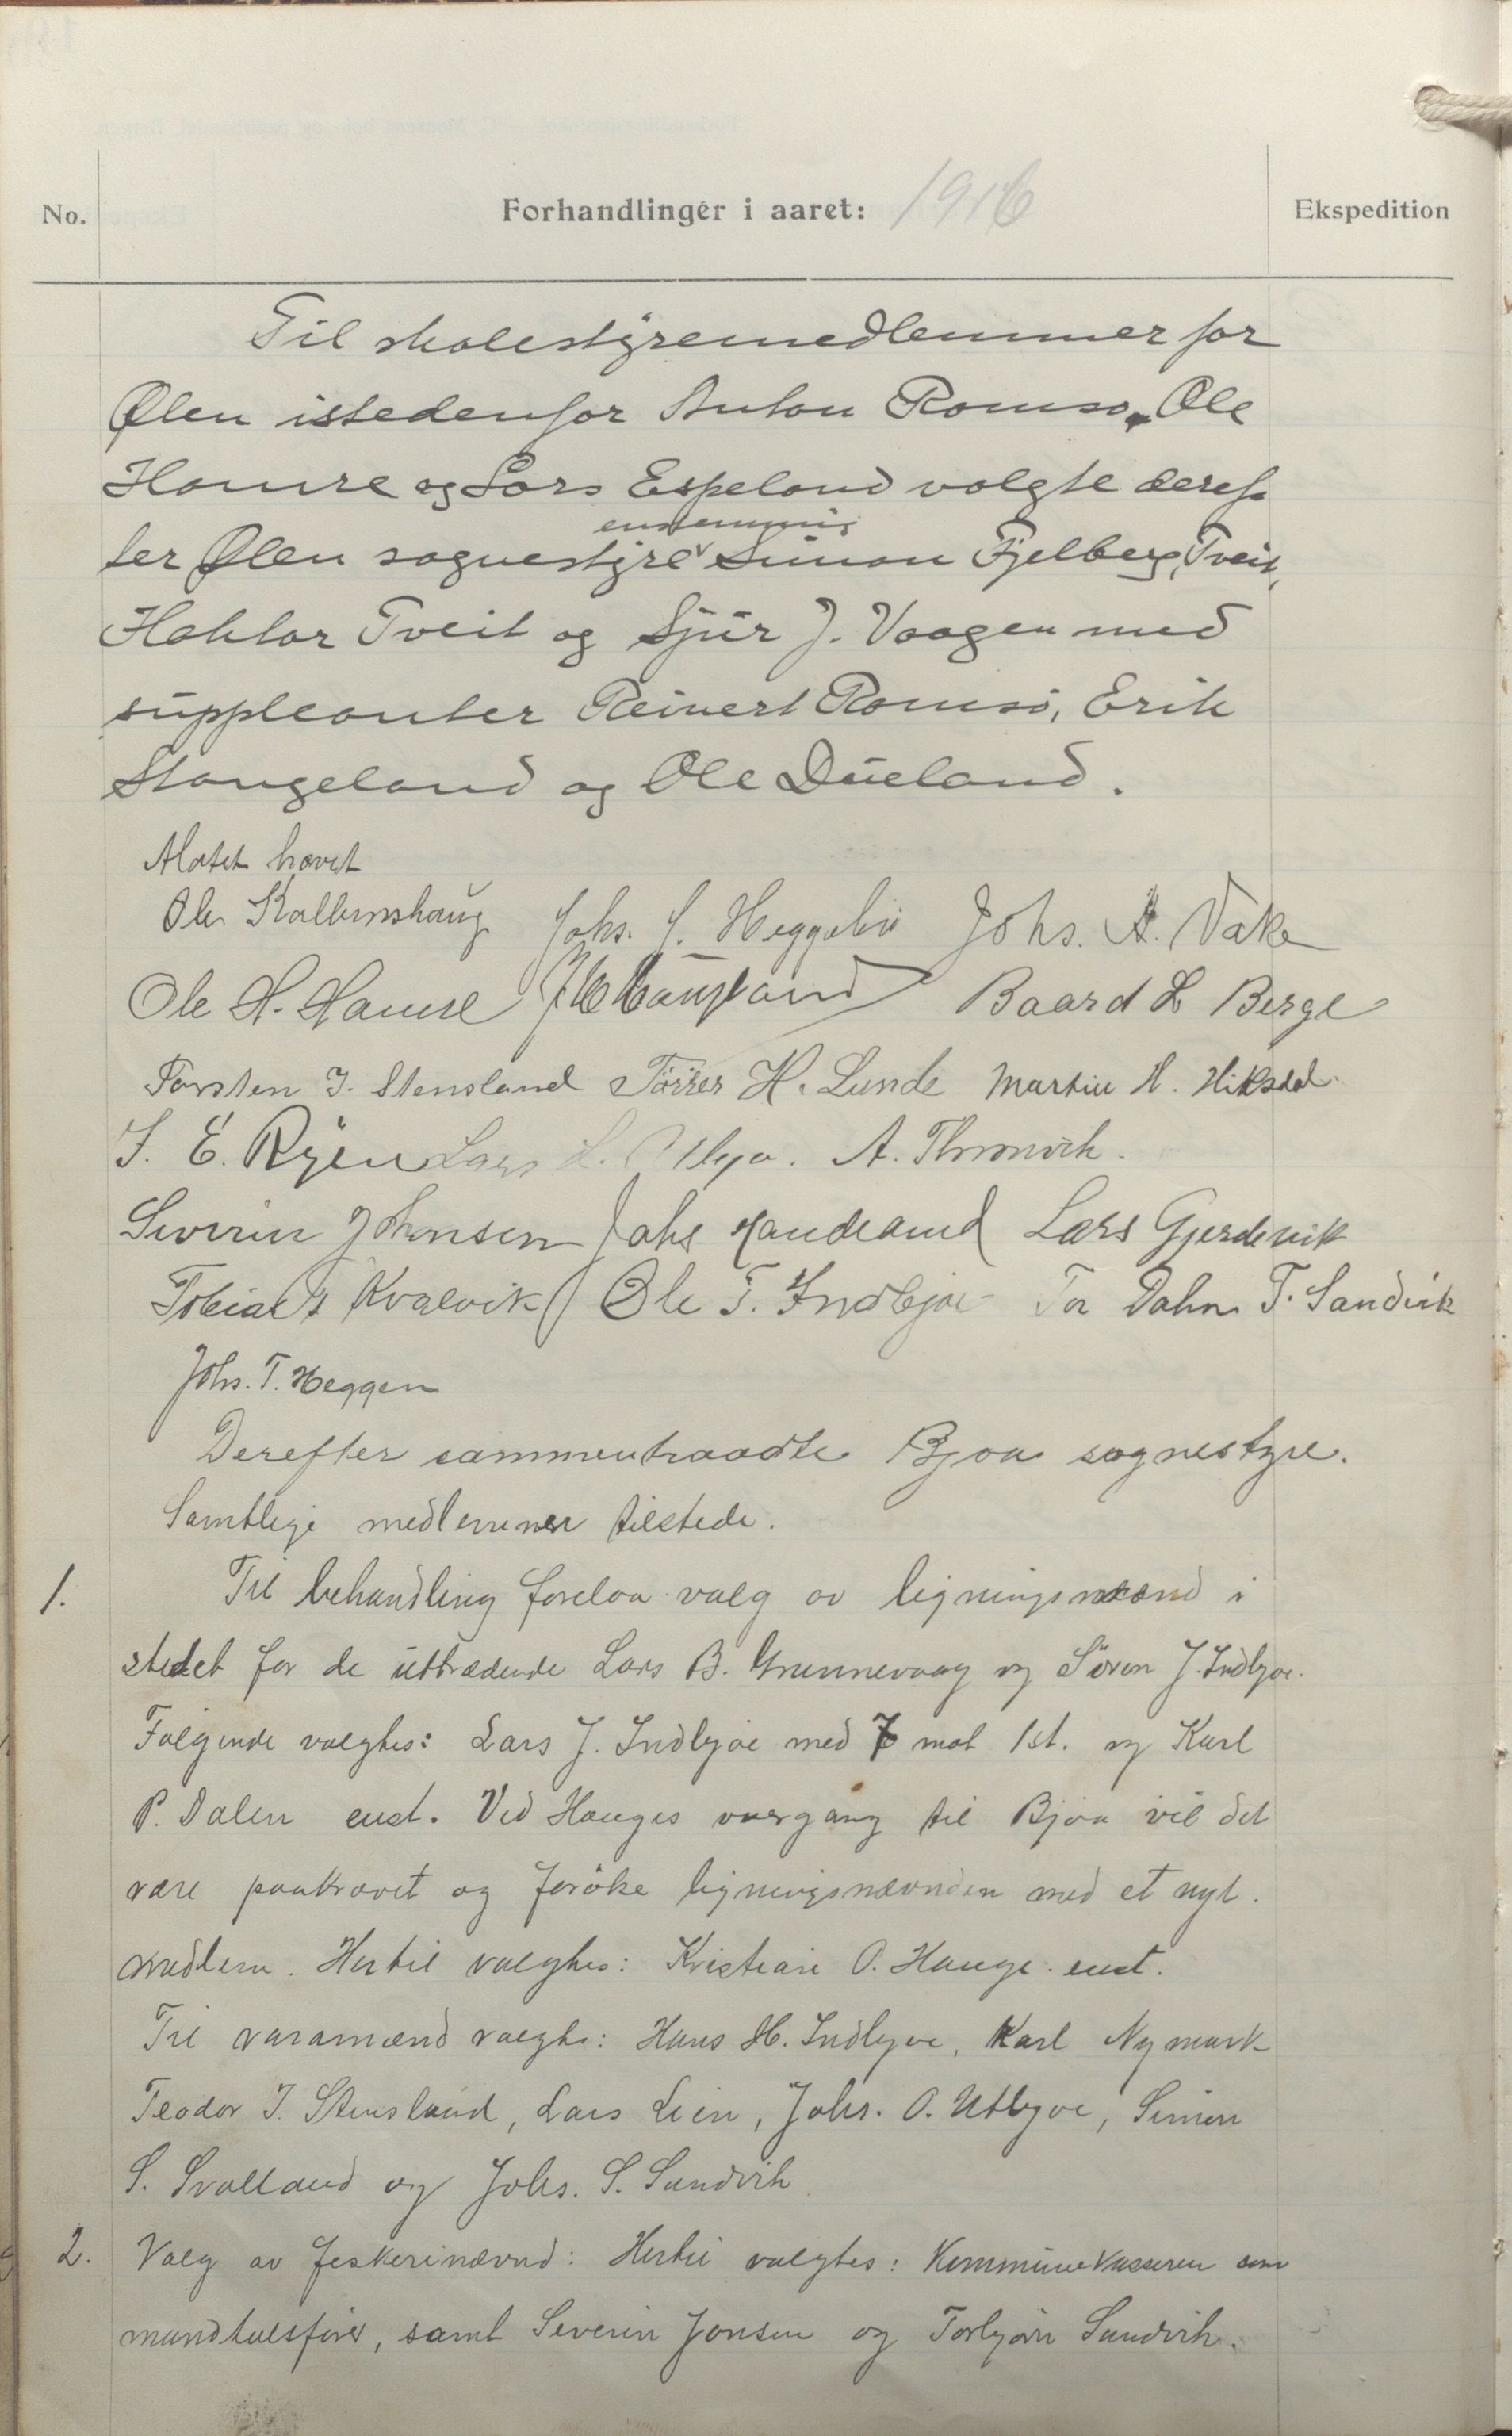 No.
Forhandlinger i aaret: 1916
Ekspedition
Til skolestyremedlemmer for
Ølen istedenfor Anton Romsø, Ole
Hamre og Lars Espeland valgte deref-
ter Ølen sognestyre enstemmig Simon Fjelberg, Tveit,
Haktor Tveit og Sjur J. Vaagen med
suppleanter Reinert Romsø, Erik
Stangeland og Ole Dueland.
Møtet hævet
Ole Kallevshaug Johs. S. Heggebø Johs. A. Vake
Ole H. Hamre Baard L Berge
Torsten J. Stensland Tørres H. Lunde Martin H. Hiksdal
J. E. Ryen Lars L. A. Thronvik.
Severin Johnsen Johs Lars Gjerdevik
Tobias Kvalvik Ole T. Indbjoe Tor Dahn T. Sandvik
Johs. T. Heggen
Derefter sammentraadte Bjoa sognestyre.
Samtlige medlemmer tilstede.
1. Til behandling forelaa valg av ligningsmænd i
stedet for de uttrædende Lars B. Grunnevaag og Søren J. Indbjoe.
Følgende valgtes: Lars J. Indbjoe med 7 mot 1 st. og Karl
P. Dalen enst. Ved Hauges overgang til Bjoa vil det
være paakrævet og forøke ligningsnævnden med et nyt
medlem. Hertil valgtes: Kristian O. Hauge enst.
Til varamænd valgtes: Hans H. Indbjoe, Karl Nymark
Teodor J. Stensland, Lars Lien, Johs. O. Utbjoe, Simon
S. Svolland og Johs. S. Sandvik
2. Valg av fiskerinævnd: Hertil valgtes: Kommunekasseren som
mandtalsfører, samt Severin Jonsen og Torbjørn Sandvik.